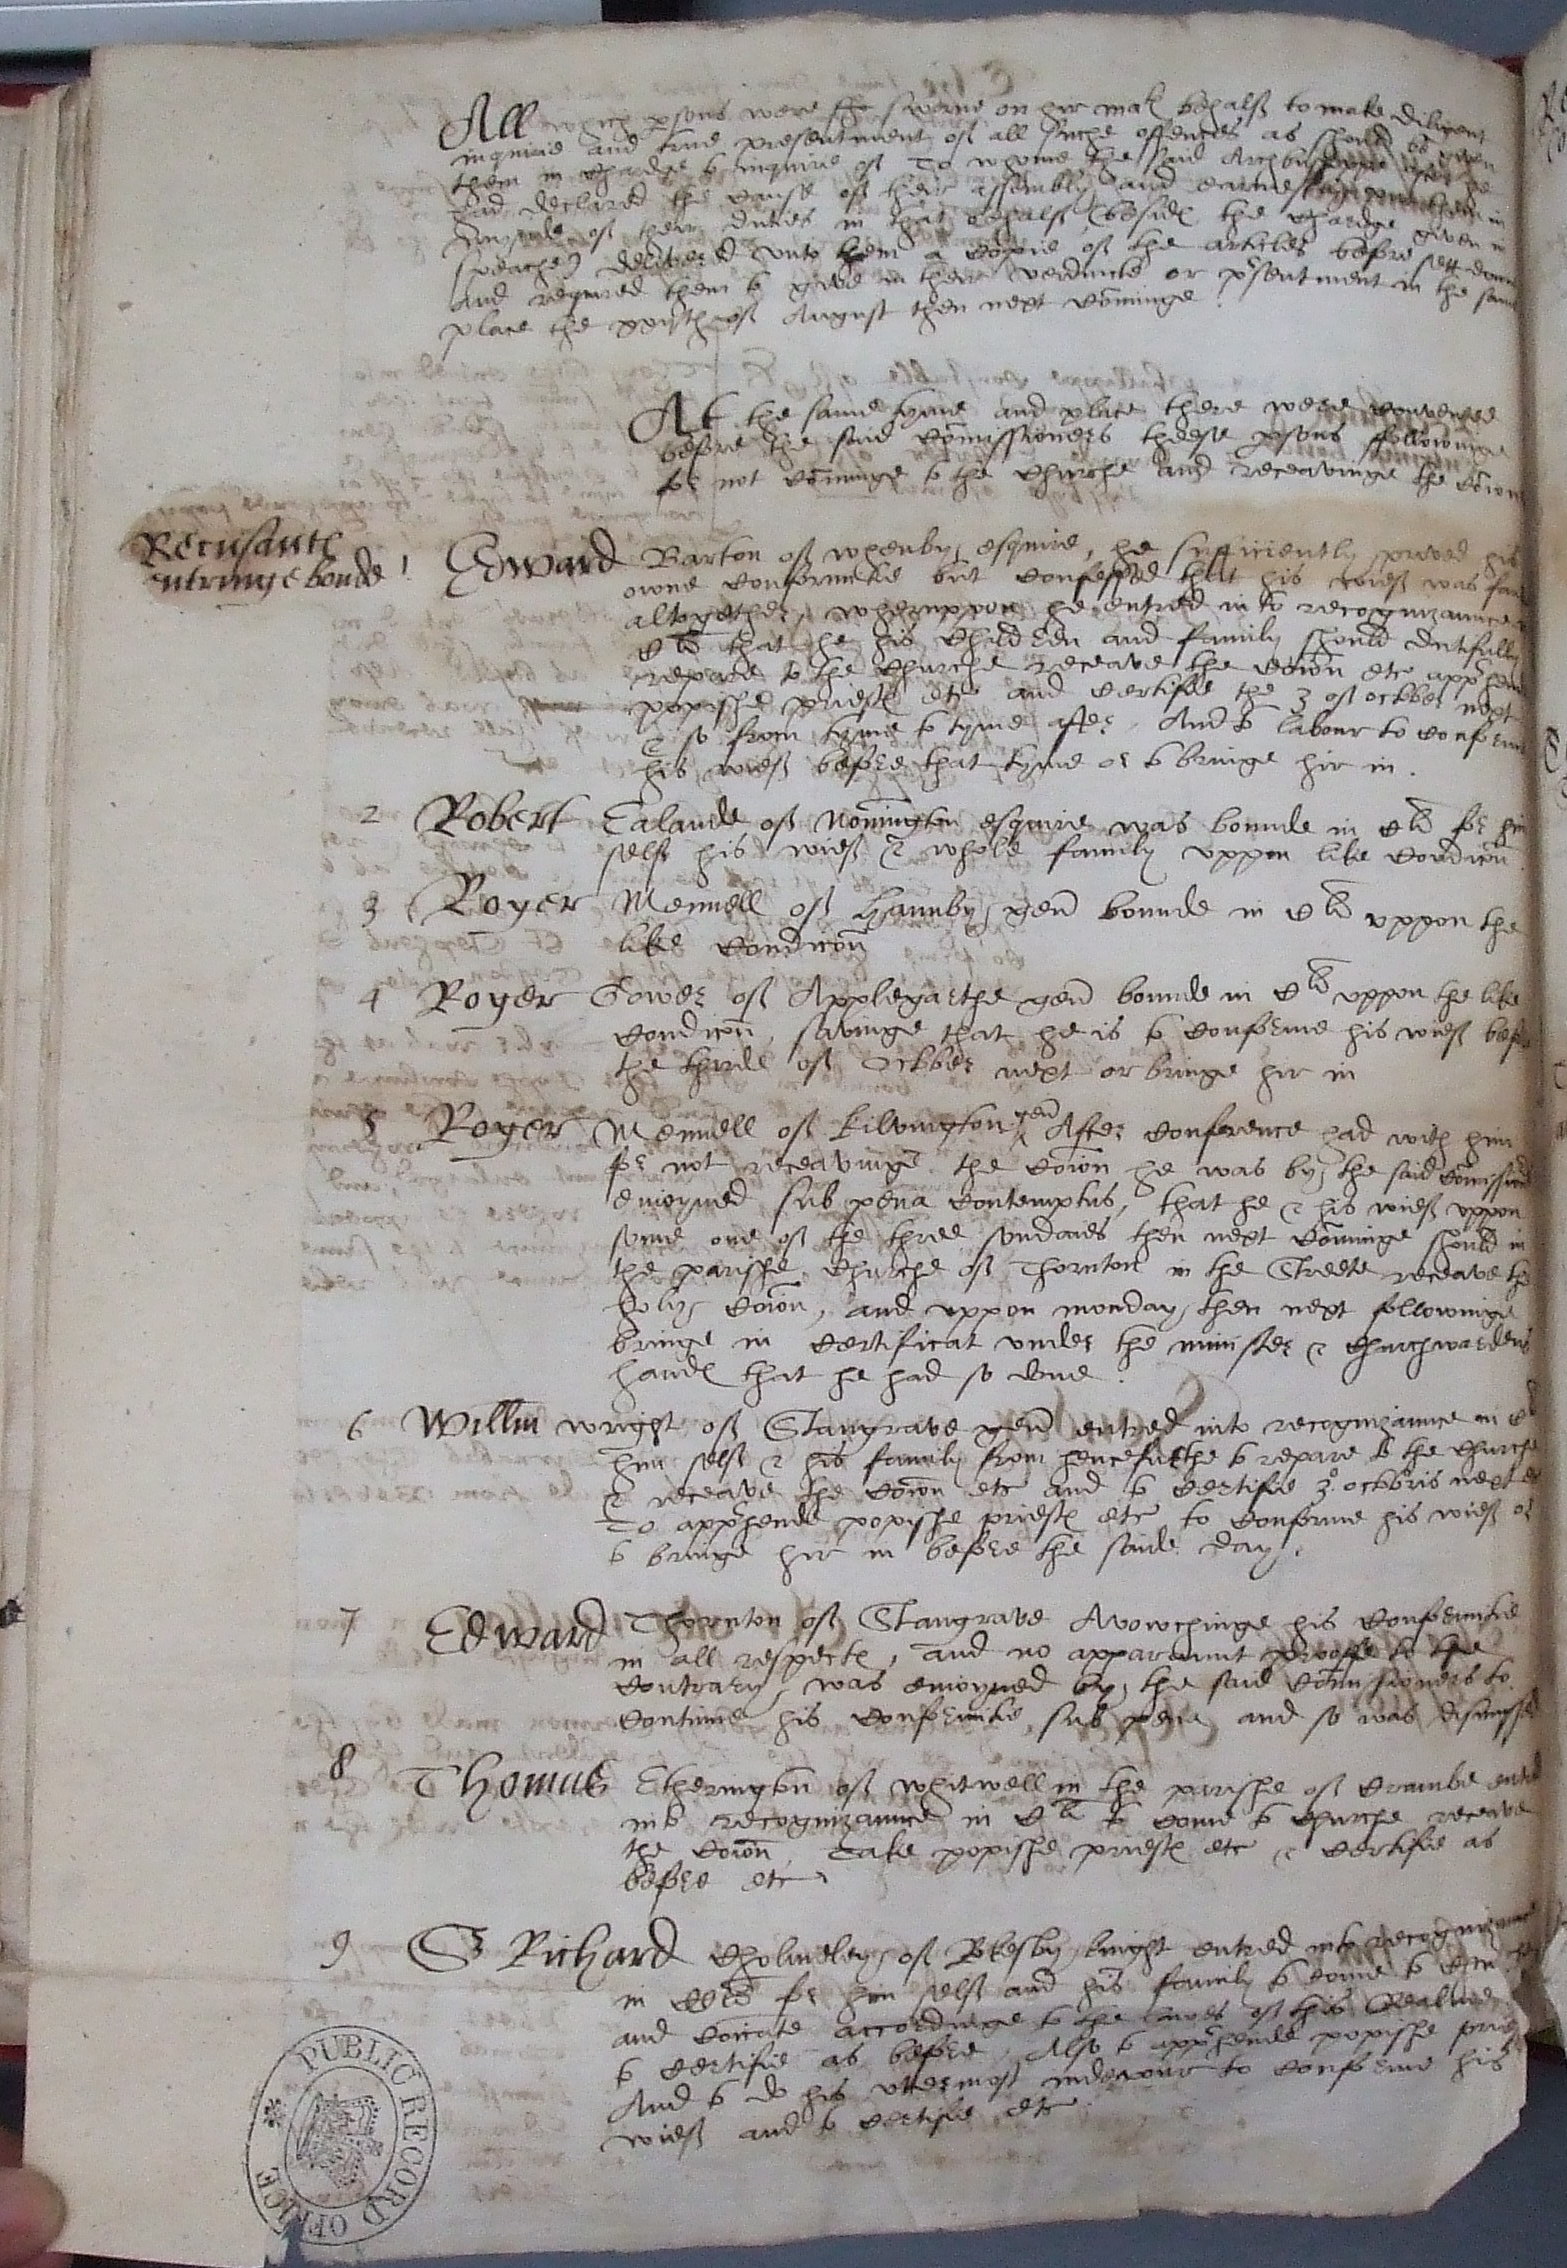 All which psons were the sworne on hir mats behalf to make diligent
inquirie and true presentment of all suche offences as should be given
them in chardge to inquire of To whome the said Archbusshope after he
had declared the cause of their assembly and earnestly them in
mynde of their duties in that behalf (besides the chardge given in
speache) delivered unto them a copie of the articles before sett downe
and required them to give in their verdicte or psentment in the same
place the of August then next cominge
At the same tyme and place there were convented
before the said comissioners theese psons followinge
for not cominge to the churche and receavinge the coion
Recusants
entringe bonde
1 Edward Barton of whenby esquire, he sufficiently proved his
owne conformitie but confessed that his wief was
altogether, wheruppon he entred in to recognizaunce
cli that he his children and family should dutifully
repare to the churche receave the coion etc apphend
popishe priests etc and certifie the 3 of october next
& so from tyme to tyme after. And to labour to conforme
his wief before that tyme or to bringe hir in.
2 Robert Ealande of Nonnington esquire was bounde in cli for him
self his wief & whole family uppon like condicon
3 Roger Mennell of Hawnby gen bounde in cli uppon the
like condicon
4 Roger Gower of Applegarthe gen bounde in cli uppon the like
condicon, savinge that he is to conforme his wief before
the thirde of October next or bringe hir in
5 Roger Mennell of Kilvington gen After conference had with him
for not receavinge the coion he was by the said comissioners
enioyned sub pena contemptus, that he & his wief uppon
some one of the three sondaies then next cominge should in
the parishe churche of Thornton in the Streete receave the
holy coion, and uppon monday then next followinge
bringe in certificat under the minister & churchwardens
hands that he had so done.
6 Willm wright of Stangrave gen entred into recognizaunce in cli
him self & his family from hencefurthe to repare to the churche
& receave the coion etc and to certifie 3o octobris next etc
To apphende popishe priests etc to conforme his wief or
to bringe hir in before the saide day.
7 Edward Thornton of Stangrave Avowchinge his conformitie
in all respects, and no apparaunt prooffe to the
contrary, was enioyned by the said comissioners to
continue his conformitie sub pena and so was dismissed
8 Thomas Etherington of whitwell in the parishe of Crambe entred
into recognizaunce in cli to come to churche receave
the coion, Take popishe priests etc & certifie as
before etc
9 Sr Richard Cholmeley of Rkesby knight entred into recognizaunce
in for him self and his family to come to
and coicate accordinge to the lawes of this Realme
to certifie as before, Also to apphende popishe priests
And to do his uttermost indevour to conforme his
wief and to certifie etc
PUBLIC RECORD OFFICE